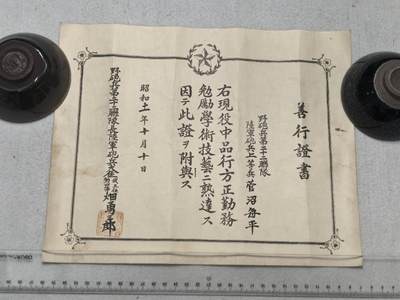 善行證書
野砲兵第二十二聯隊
陸軍砲兵上等兵 菅沼毎平
右現役中品行方正勤務
勉勵學術技藝ニ熟達ス
因テ此證ヲ附與ス
昭和十一年十月十日
野砲兵第二十二聯隊長陸軍砲兵大佐從五位勳三等畑勇三郎